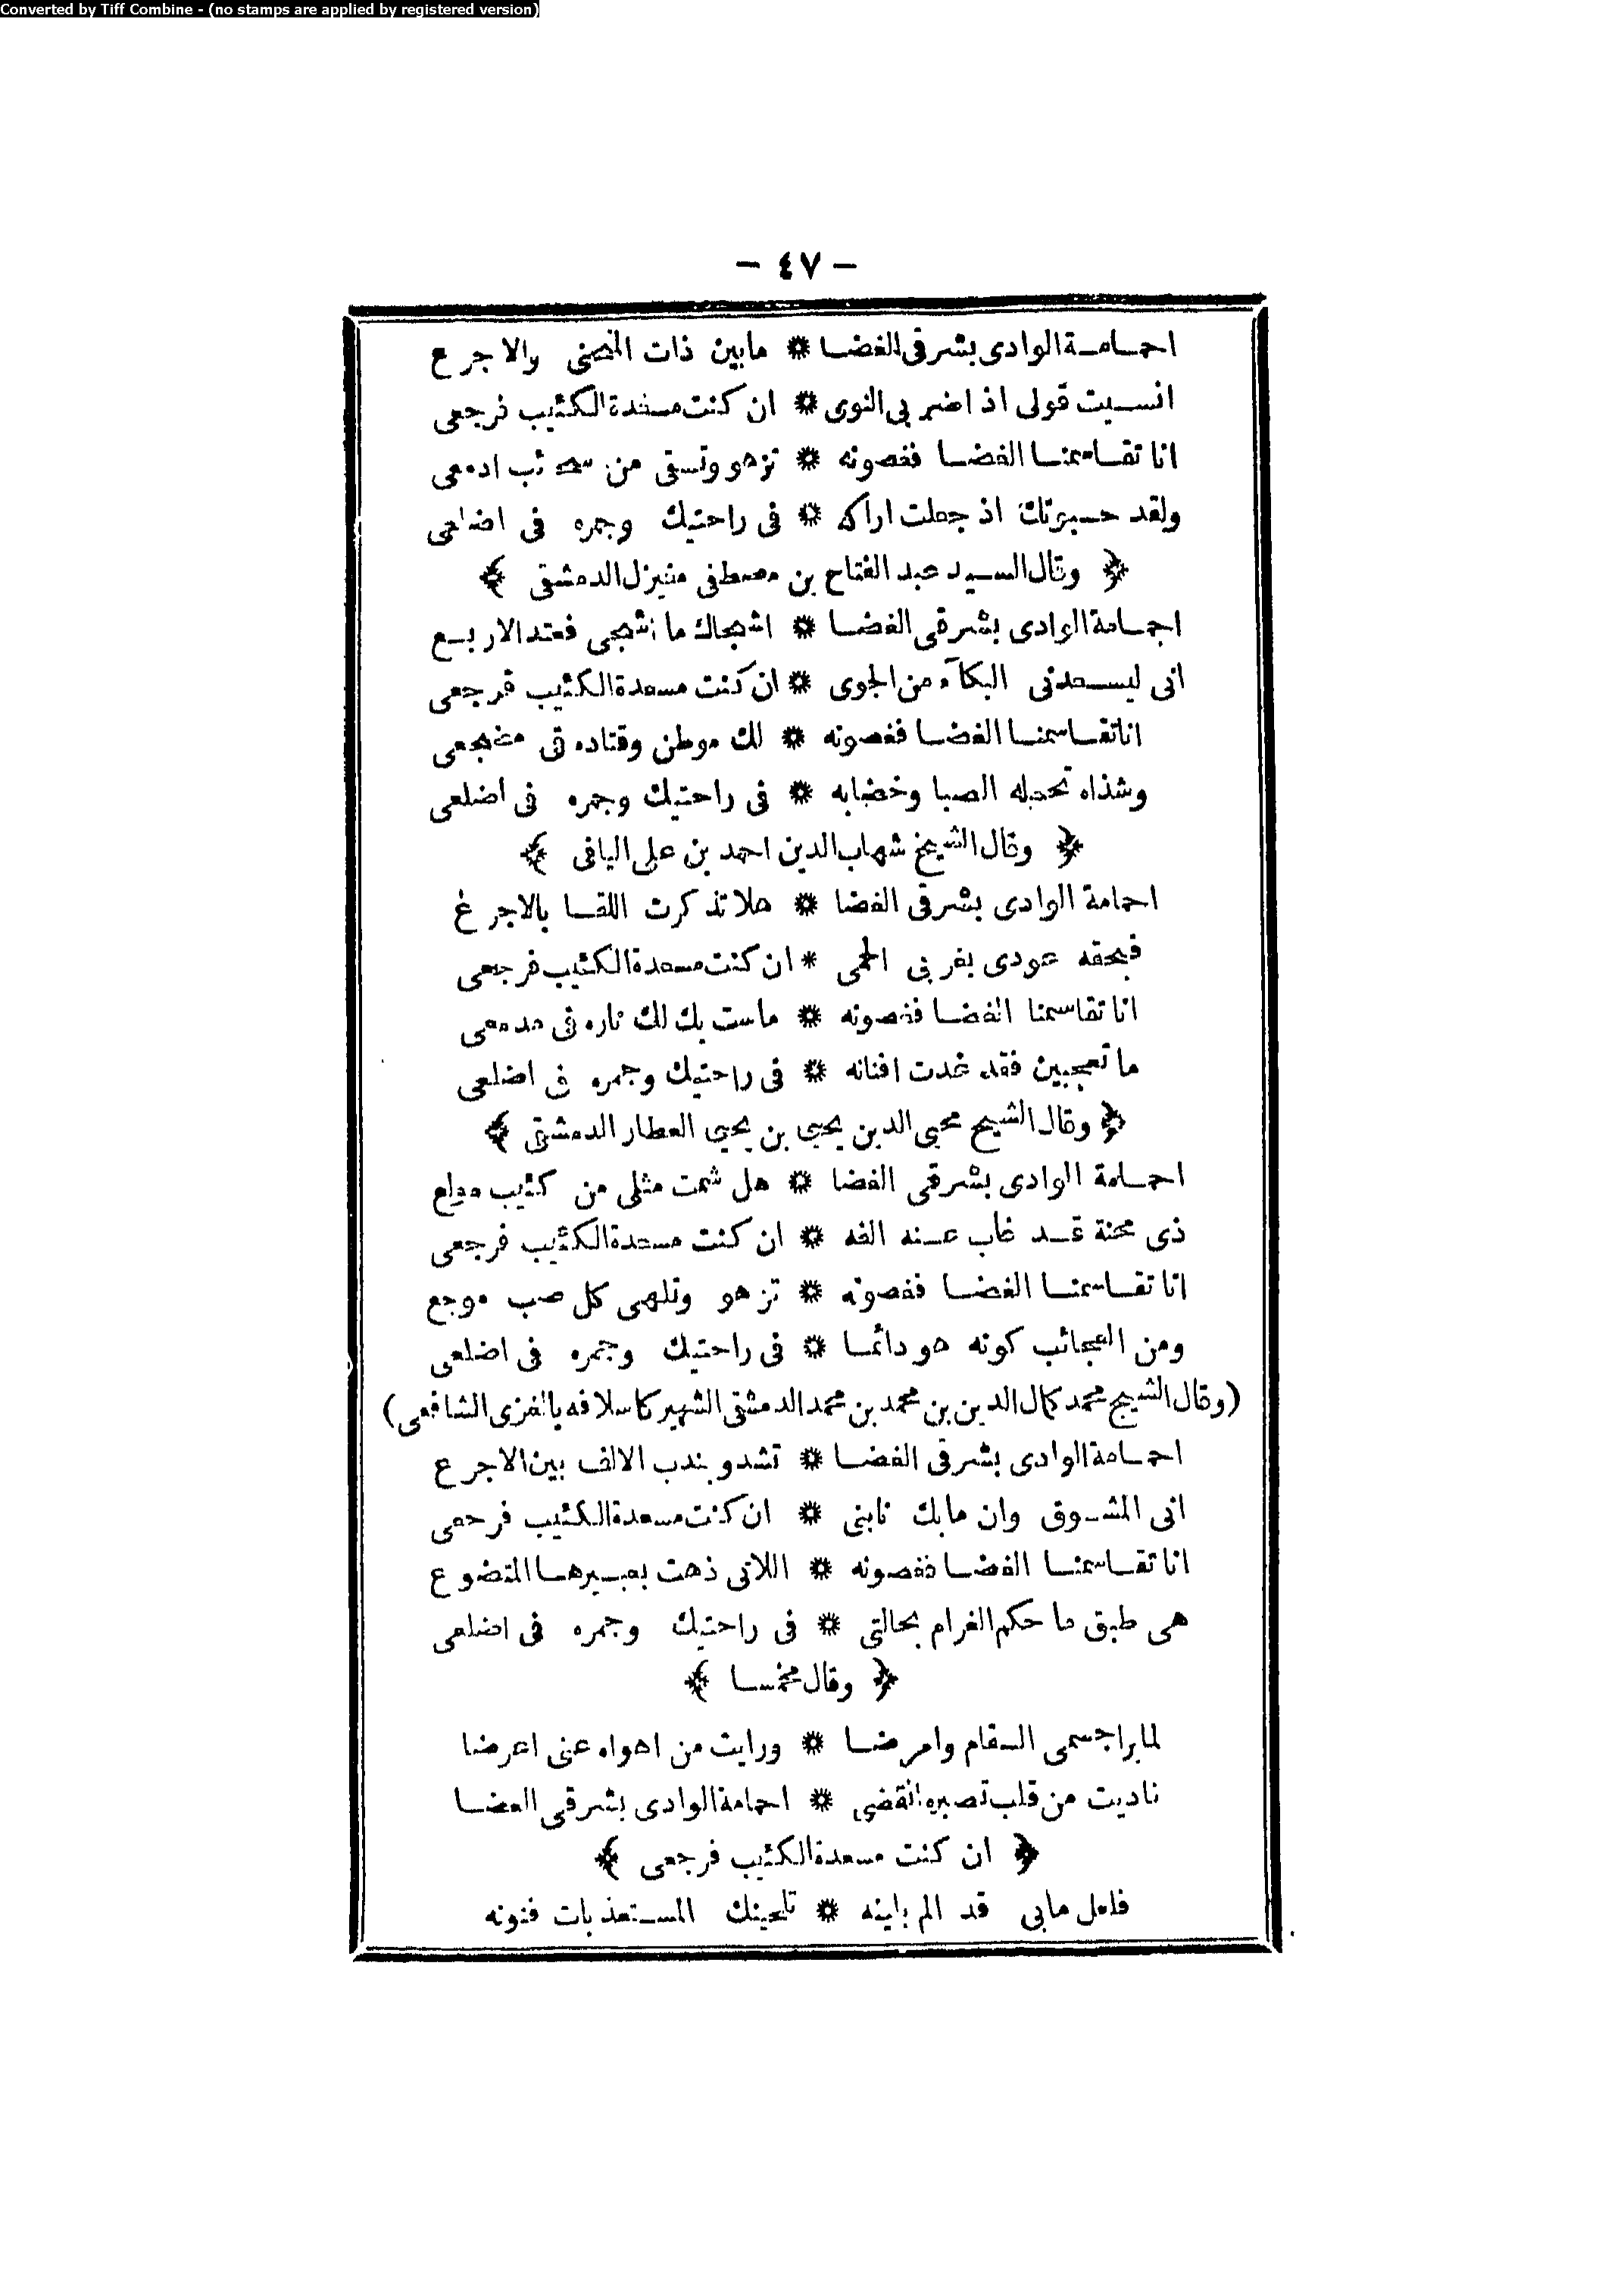 Converted by Tiff Combine - (no stamps are applied by registered version)
- ٤٧ -
احمامة الوادى بشرقى الغضا * مابين ذات المنحنى والاجرع
انسيت قولى اذ اضر بى النوى * ان كنت مسعدة الكئيب فرجعى
انا تقاسمنا الغضا فغصونه * تزهو وتسقى من سحائب ادمعى
ولقد حسبتك اذ جعلت اراكه * فى راحتيك وجمره فى اضلعى
﴿ وقال السيد عبد الفتاح بن مصطفى مغيزل الدمشقى ﴾
احمامة الوادى بشرقى الغضا * اشجاك ما اشجى فعند الاربع
انى ليسعدنى البكآء من الجوى * ان كنت مسعدة الكئيب فرجعى
انا تقاسمنا الغضا فغصونه * لك موطن وقتاده فى مضجعى
وشذاه تحمله الصبا وخضابه * فى راحتيك وجمره فى اضلعى
﴿ وقال الشيخ شهاب الدين احمد بن على اليافى ﴾
احمامة الوادى بشرقى الغضا * هلا تذكرت اللقا بالاجرع
فبحقه عودى بقربى الحمى * ان كنت مسعدة الكئيب فرجعى
انا تقاسمنا الغضا فغصونه * ماست بك لك ناره فى مدمعى
ما تعجبين فقد غدت افنانه * فى راحتيك وجمره فى اضلعى
﴿ وقال الشيخ محيى الدين يحيى بن يحيى العطار الدمشقى ﴾
احمامة الوادى بشرقى الغضا * هل شمت مثلى من كئيب مولع
ذى محنة قد غاب عنه الفه * ان كنت مسعدة الكئيب فرجعى
انا تقاسمنا الغضا فغصونه * تزهو وتلهى كل صب موجع
ومن العجائب كونه هو دائما * فى راحتيك وجمره فى اضلعى
(وقال الشيخ محمد كمال الدين بن محمد بن محمد الدمشقى الشهير كاسلافه بالغزى الشافعى)
احمامة الوادى بشرقى الغضا * تشدو بندب الالف بين الاجرع
انى المشوق وان مابك نابنى * ان كنت مسعدة الكئيب فرجعى
انا تقاسمنا الغضا فغصونه * اللاتى ذهت بعبيرها المتضوع
هى طبق ما حكم الغرام بحالتى * فى راحتيك وجمره فى اضلعى
﴿ وقال مخمسا ﴾
لما برا جسمى السقام وامرضا * ورايت من اهواه عنى اعرضا
ناديت من قلب تصبره انقضى * احمامة الوادى بشرقى الغضا
﴿ ان كنت مسعدة الكئيب فرجعى ﴾
فلعل مابى قد الم باينه * تلحينك المستعذبات فنونه